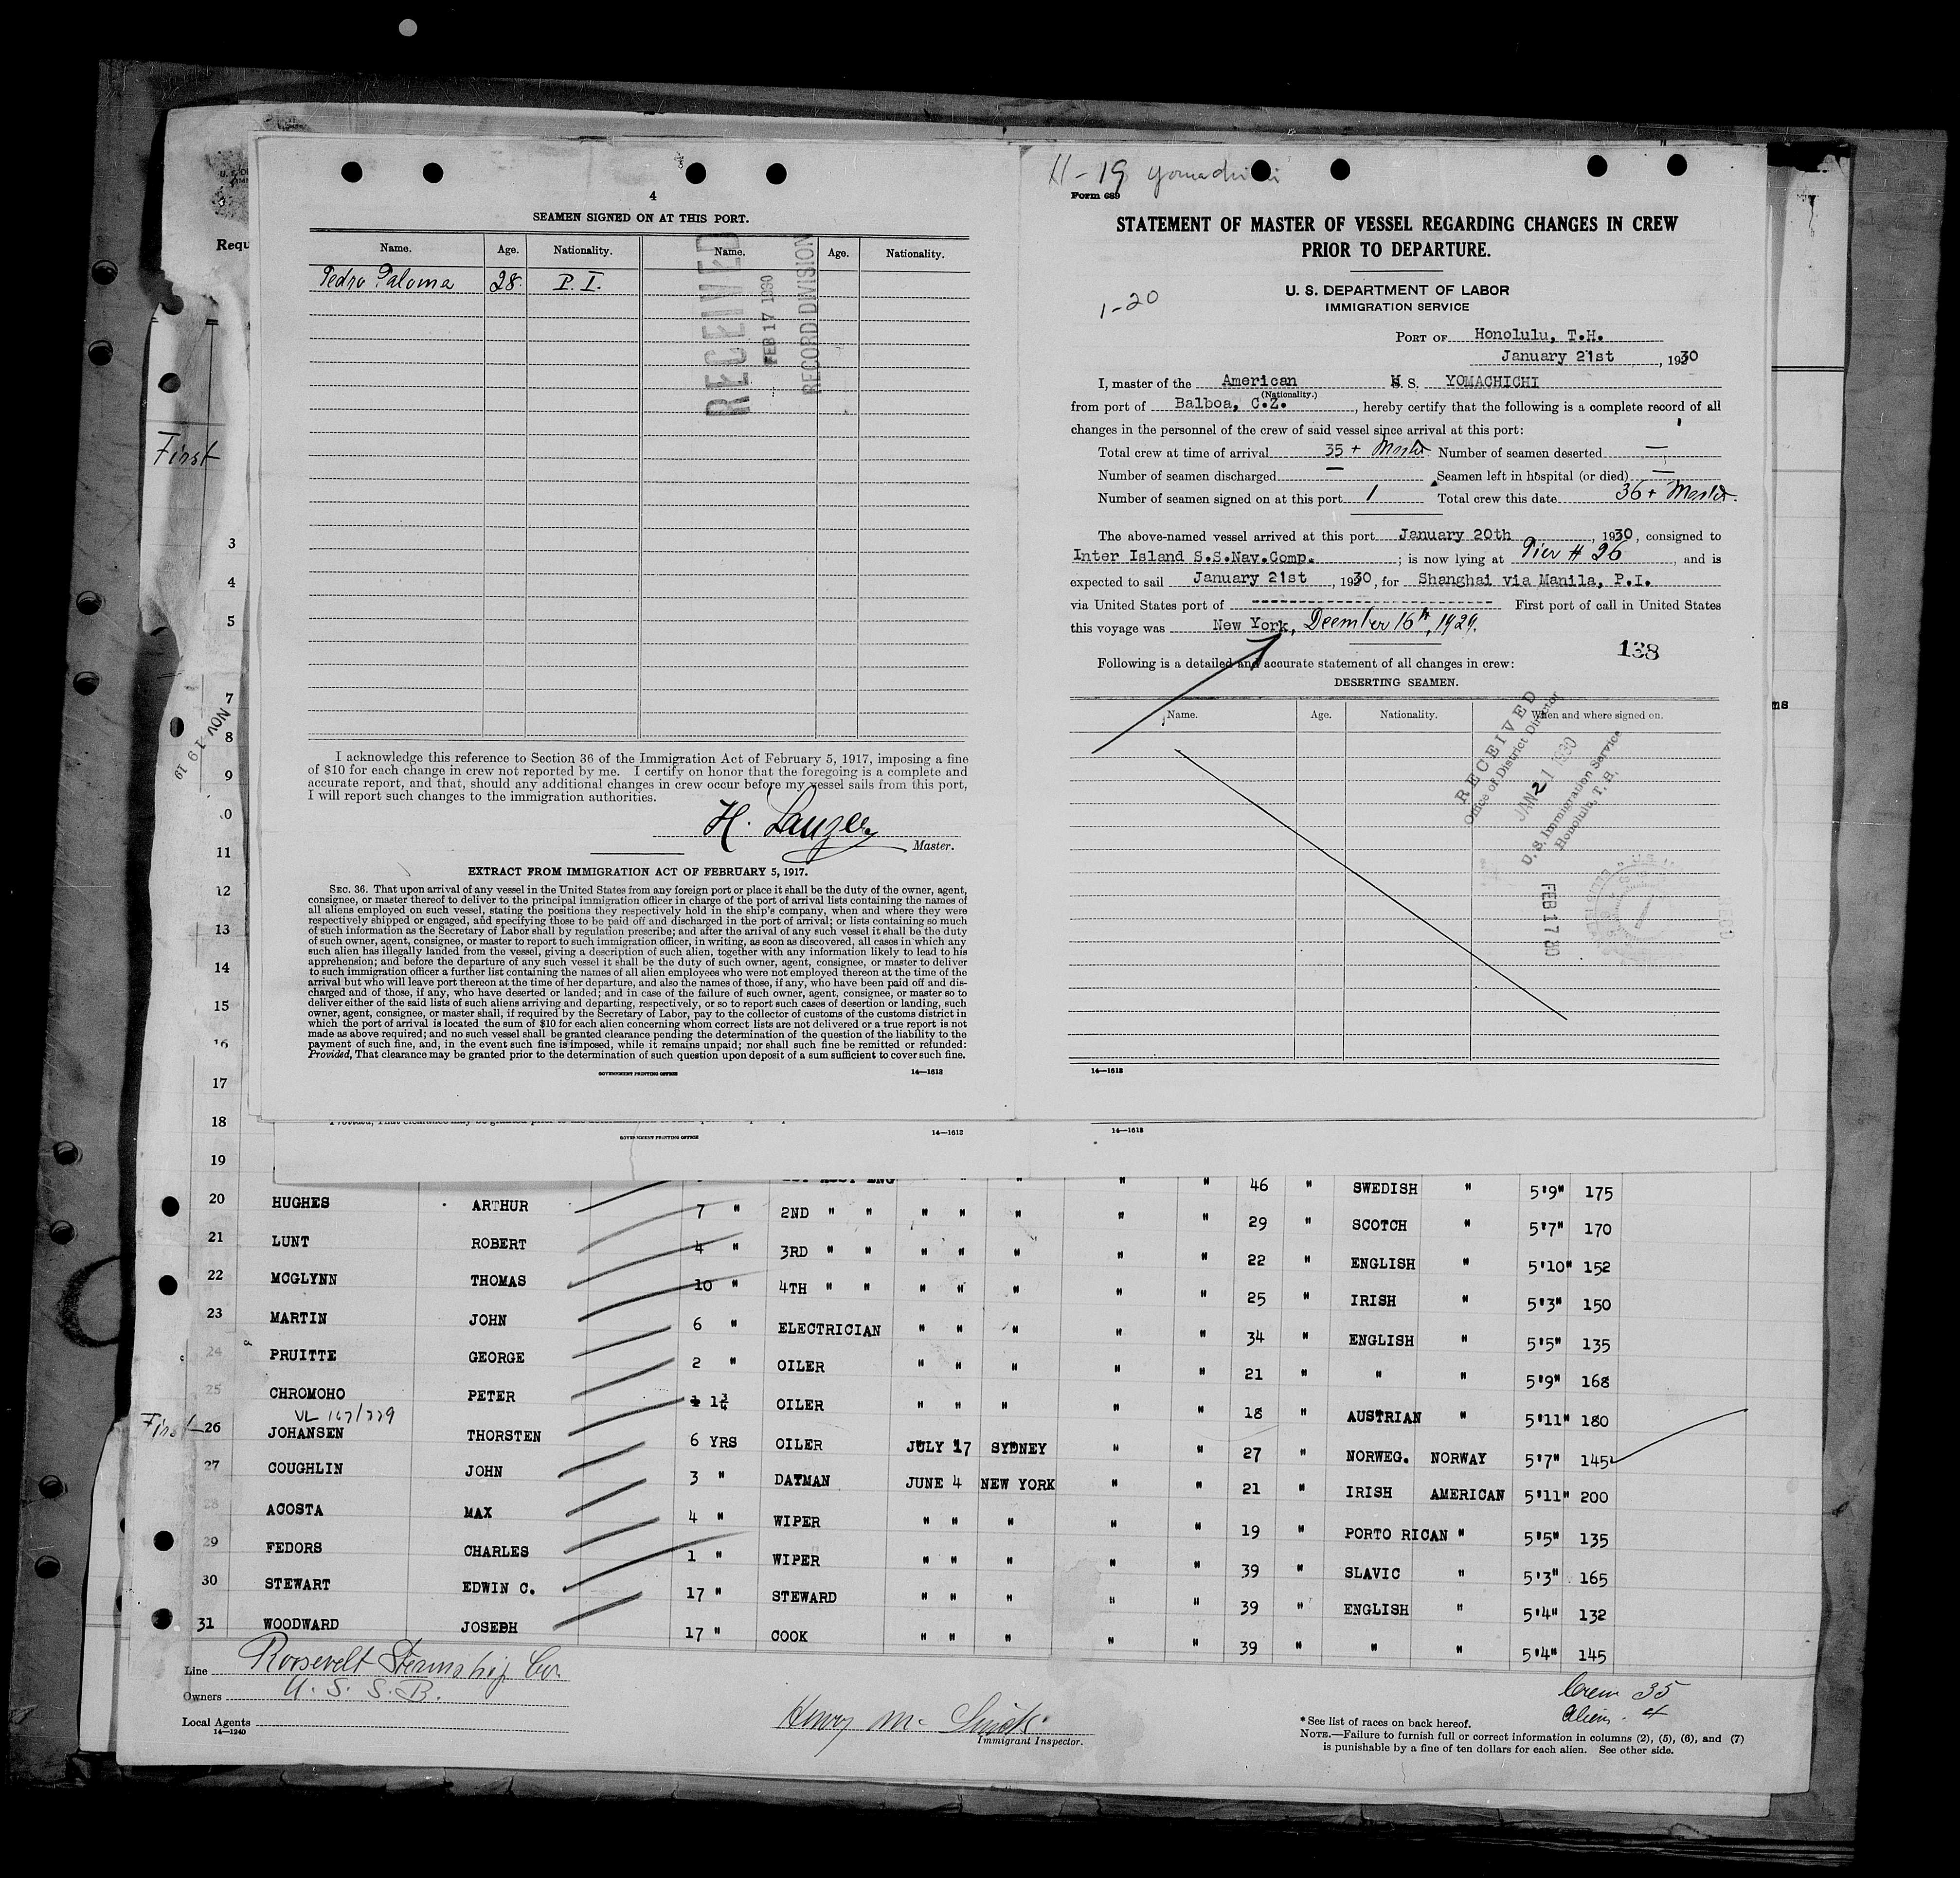 4
SEAMEN SIGNED ON AT THIS PORT.
Name. Age. Nationality. Name. Age. Nationality.
Pedro Paloma 28 P. I.
RECEIVED
FEB 17 1930
RECORD DIVISION
I acknowledge this reference to Section 36 of the Immigration Act of February 5, 1917, imposing a fine
of $10 for each change in crew not reported by me. I certify on honor that the foregoing is a complete and
accurate report, and that, should any additional changes in crew occur before my vessel sails from this port,
I will report such changes to the immigration authorities.
H.
Master.
EXTRACT FROM IMMIGRATION ACT OF FEBRUARY 5, 1917.
SEC. 36. That upon arrival of any vessel in the United States from any foreign port or place it shall be the duty of the owner, agent,
consignee, or master thereof to deliver to the principal immigration officer in charge of the port of arrival lists containing the names of
all aliens employed on such vessel, stating the positions they respectively hold in the ship's company, when and where they were
respectively shipped or engaged, and specifying those to be paid off and discharged in the port of arrival; or lists containing so much
of such information as the Secretary of Labor shall by regulation prescribe; and after the arival of any such vessel it shall be the duty
of such owner, agent, consignee, or master to report to such immigration officer, in writing, as soon as discovered, all cases in which any
such alien has illegally landed from the vessel, giving a description of such alien, together with any information likely to lead to his
apprehension; and before the departure of any such vessel it shall be the duty of such owner, agent, consignee, or master to deliver
to such immigration officer a further list containing the names of all alien employees who were not employed thereon at the time of the
arrival but who will leave port thereon at the time of her departure, and also the names of those, if any, who have been paid off and dis-
charged and of those, if any, who have deserted or landed; and in case of the failure of such owner, agent, consignee, or master so to
deliver either of the said lists of such aliens arriving and departing, respectively, or so to report such cases of desertion or landing, such
owner, agent, consignee, or master shall, if required by the Secretary of Labor, pay to the collector of customs of the customs district in
which the port of arrival is located the sum of $10 for each alien concerning whom correct lists are not delivered or a true report is not
made as above required; and no such vessel shall be granted clearance pending the determination of the question of the liability to the
payment of such fine, and, in the event such fine is imposed, while it remains unpaid; nor shall such fine be remitted or refunded:
Provided, That clearance may be granted prior to the determination of such question upon deposit of a sum sufficient to cover such fine.
GOVERNMENT PRINTING OFFICE 14—1613
H-19 Yomachichi
Form 689
STATEMENT OF MASTER OF VESSEL REGARDING CHANGES IN CREW
PRIOR TO DEPARTURE.
U. S. DEPARTMENT OF LABOR
IMMIGRATION SERVICE
1-20
PORT OF Honolulu, T.H.
January 21st, 1930
I, master of the American M. S. YOMACHICHI
(Nationality.)
from port of Balboa, C.Z., hereby certify that the following is a complete record of all
changes in the personnel of the crew of said vessel since arrival at this port:
Total crew at time of arrival 35 + Master Number of seamen deserted —
Number of seamen discharged — Seamen left in hospital (or died) —
Number of seamen signed on at this port 1 Total crew this date 36 + Master
The above-named vessel arrived at this port January 20th, 1930, consigned to
Inter Island S.S.Nav.Comp.; is now lying at Pier # 26, and is
expected to sail January 21st, 1930, for Shanghai via Manila, P.I.
via United States port of ---------- First port of call in United States
this voyage was New York, Deember 16th, 1929.
138
Following is a detailed and accurate statement of all changes in crew:
DESERTING SEAMEN.
Name. Age. Nationality. When and where signed on.
RECEIVED
Office of District Director
JAN 21 1930
U. S. Immigration Service
Honolulu, T. H.
FEB 17 30
14—1613
Requ
First
NOV 19 19
3
4
5
7
8
9
11
12
13
14
15
16
17
18
19
GOVERNMENT PRINTING OFFICE 14—1613 14—1613
1ST ASST ENG " " " " " 46 " SWEDISH " 5'9" 175
20 HUGHES ARTHUR 7 " 2ND " " " " " " " 29 " SCOTCH " 5'7" 170
21 LUNT ROBERT 4 " 3RD " " " " " " " 22 " ENGLISH " 5'10" 152
22 MCGLYNN THOMAS 10 " 4TH " " " " " " " 25 " IRISH " 5'3" 150
23 MARTIN JOHN 6 " ELECTRICIAN " " " " " 34 " ENGLISH " 5'5" 135
24 PRUITTE GEORGE 2 " OILER " " " " " 21 " " " 5'9" 168
25 CHROMOHO PETER 1 1¾ OILER " " " " " 18 " AUSTRIAN " 5'11" 180
VL 167/229
First 26 JOHANSEN THORSTEN 6 YRS OILER JULY 17 SYDNEY " " 27 " NORWEG. NORWAY 5'7" 145
27 COUGHLIN JOHN 3 " DAYMAN JUNE 4 NEW YORK " " 21 " IRISH AMERICAN 5'11" 200
28 ACOSTA MAX 4 " WIPER " " " " " 19 " PORTO RICAN " 5'5" 135
29 FEDORS CHARLES 1 " WIPER " " " " " 39 " SLAVIC " 5'3" 165
30 STEWART EDWIN C. 17 " STEWARD " " " " " 39 " ENGLISH " 5'4" 132
31 WOODWARD JOSEPH 17 " COOK " " " " " 39 " " " 5'4" 145
Line Roosevelt Steamship Co.
Owners U. S. S. B.
Local Agents
14—1240
Henry Mc
Immigrant Inspector.
Crew 35
Aliens 4
*See list of races on back hereof.
NOTE.—Failure to furnish full or correct information in columns (2), (5), (6), and (7)
is punishable by a fine of ten dollars for each alien. See other side.